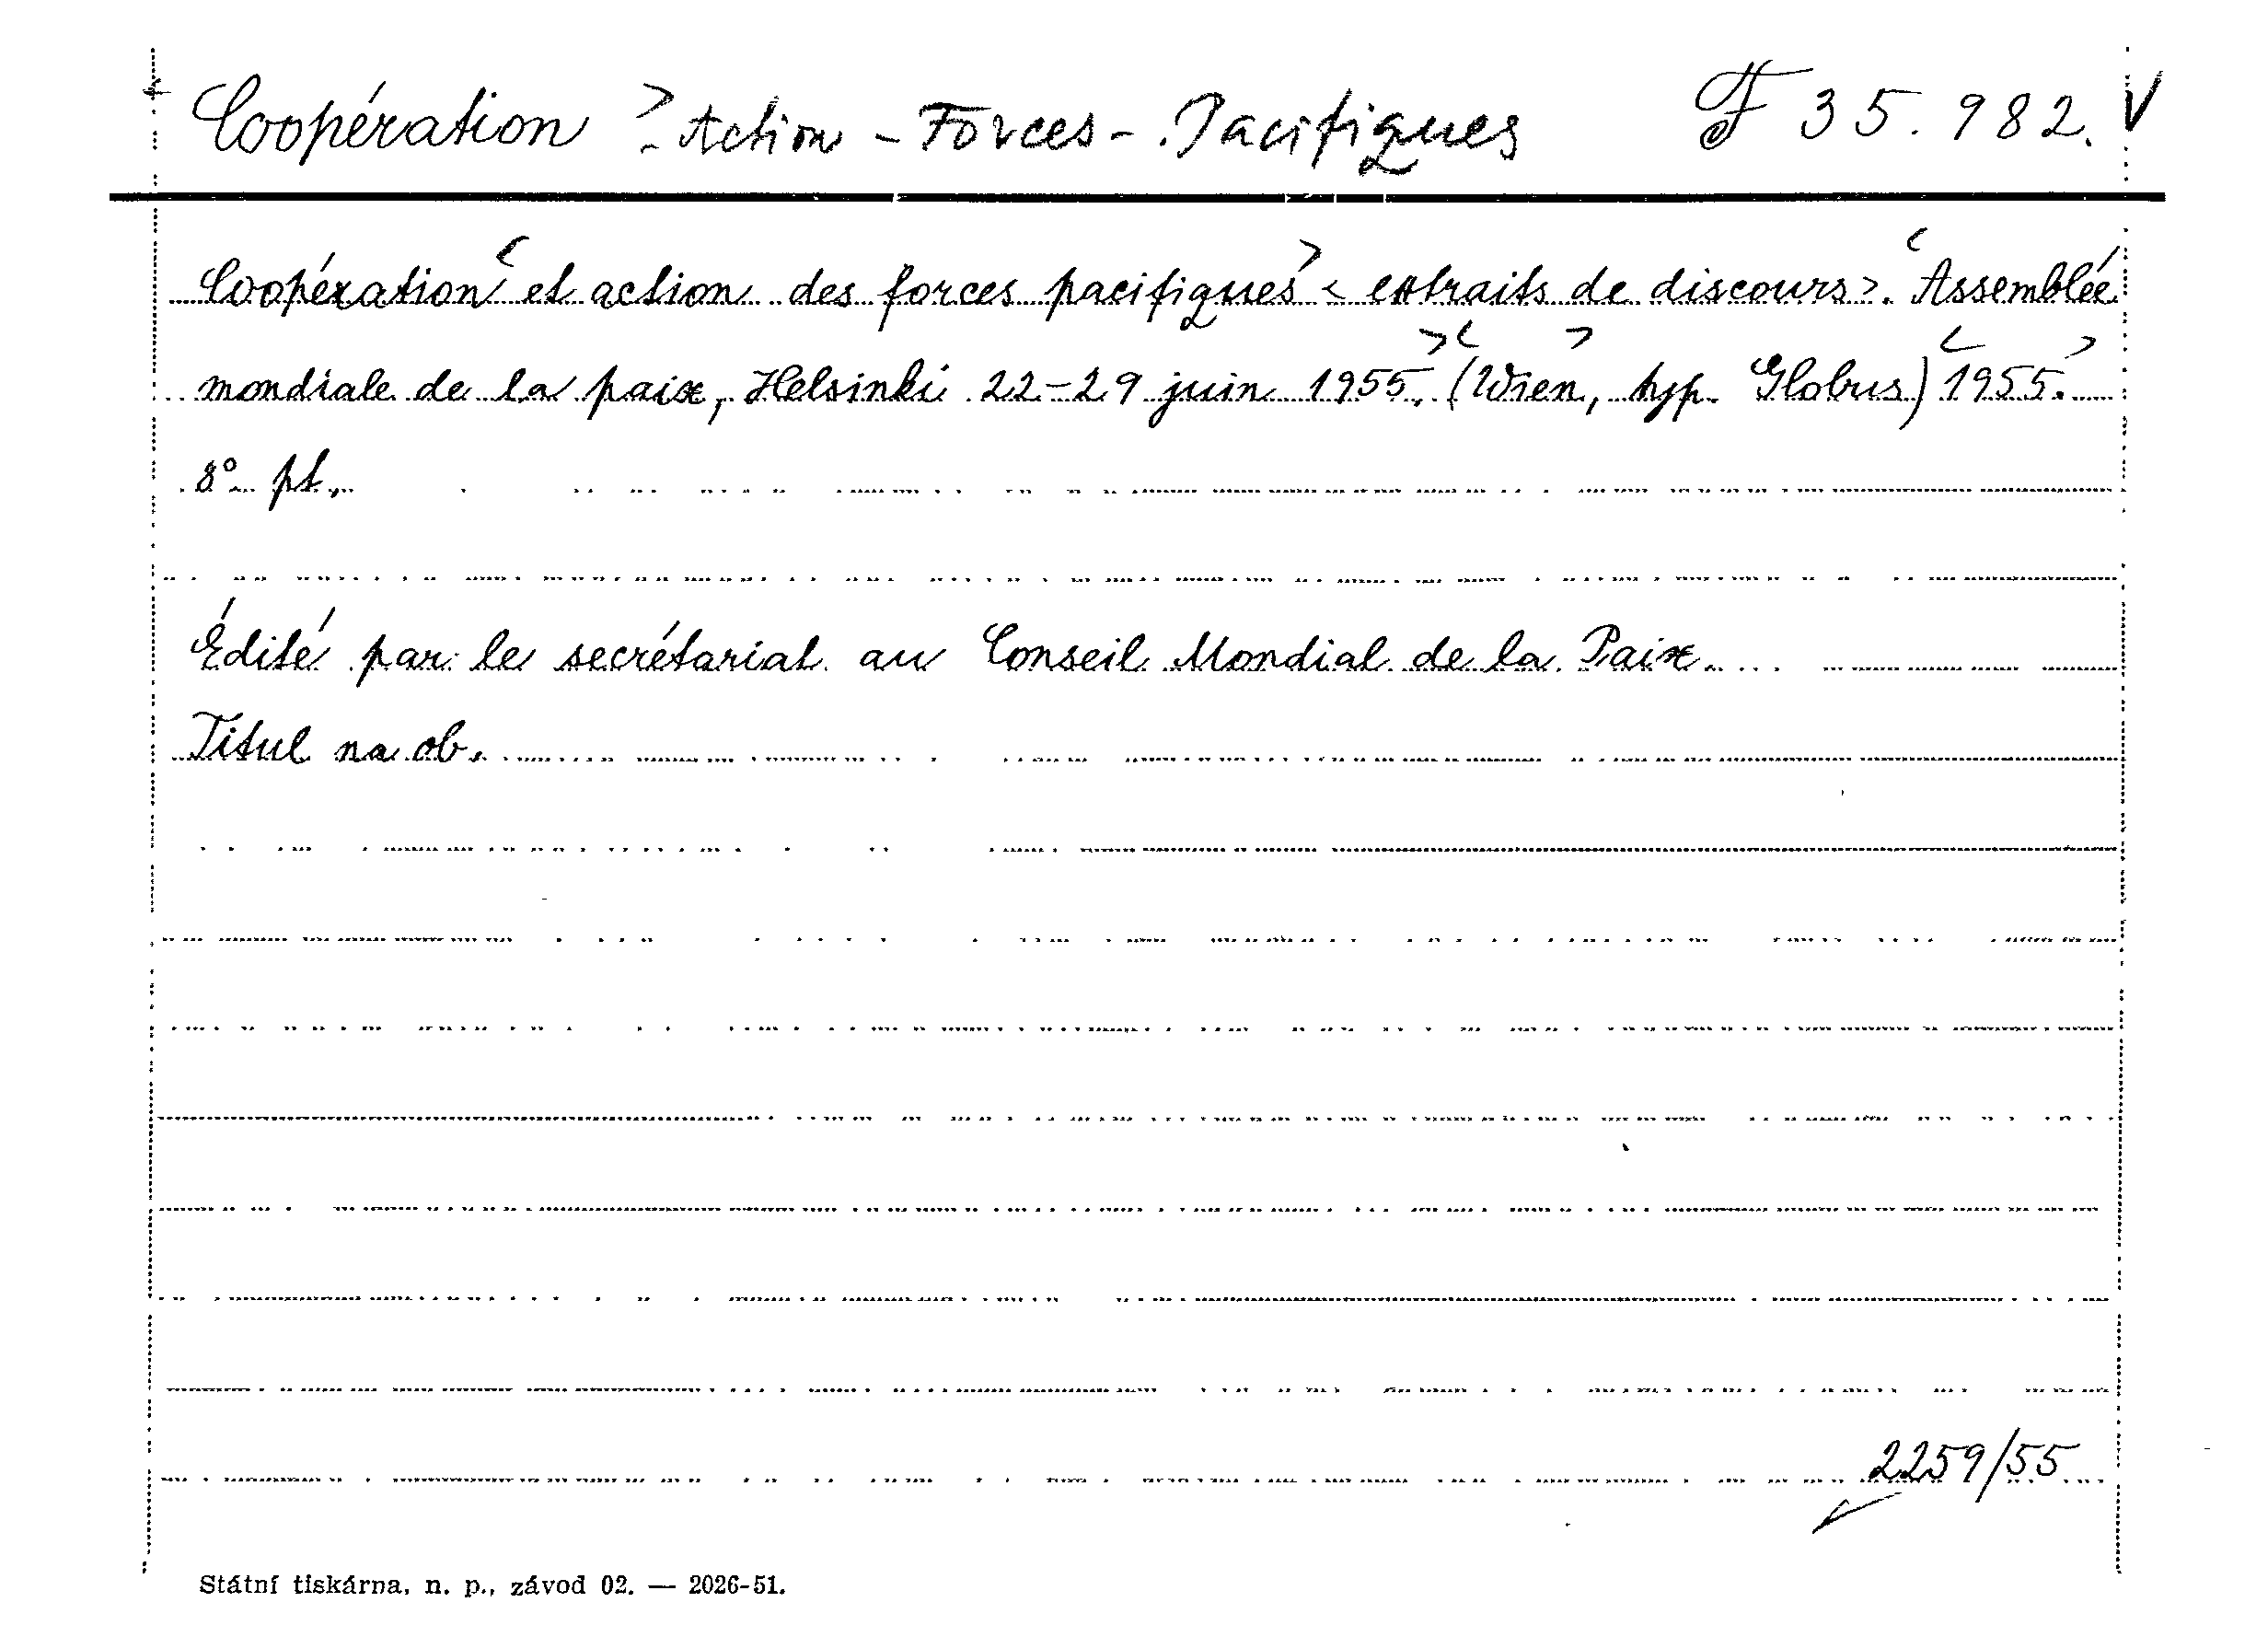 Coopération - Action - Forces - Pacifiques F 35.982. V
Coopération et action des forces pacifiques < extraits de discours >. Assemblée
mondiale de la paix, Helsinki 22-29 juin 1955. (Wien, typ. Globus) 1955.
8° pt.
Édité par le secrétariat au Conseil Mondial de la Paix.
Titul na ob.
2259/55
Státní tiskárna, n. p., závod 02. — 2026-51.